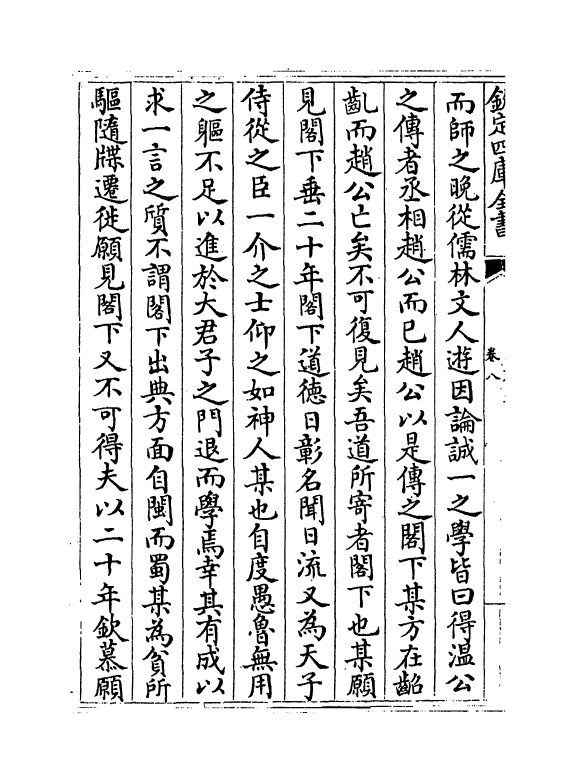 欽定四庫全書
卷八
而師之晚從儒林文人遊因論誠一之學皆曰得温公
之傳者丞相趙公而已趙公以是傳之閣下某方在齠
齓而趙公亡矣不可復見矣吾道所寄者閣下也某願
見閣下垂二十年閣下道徳日彰名聞日流又為天子
侍從之臣一介之士仰之如神人某也自度愚魯無用
之軀不足以進於大君子之門退而學焉幸其有成以
求一言之質不謂閣下出典方面自閩而蜀某為貧所
驅隨牒遷徙願見閣下又不可得夫以二十年欽慕願